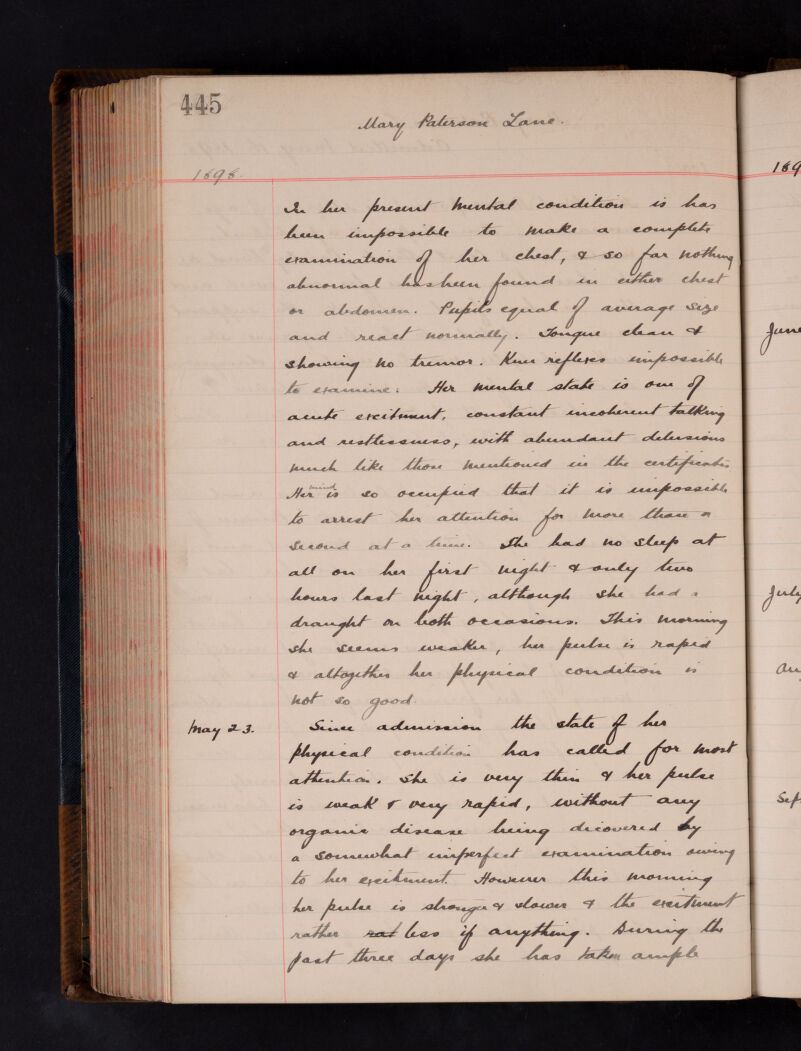 445
Mary Paterson Lane.
1898.
In her present mental condition is has
been impossible to make a complete
examination of her chest, & so far nothing
abnormal has been found in either chest
or abdomen. Pupils equal of average size
and react normally. Tongue clean &
showing no tremor. Knee reflexes impossible
to examine. Her mental state is one of
acute excitment, constant incoherent talking
and restlessness, with abundant delusions
much like those mentioned in the certificates
Her mind is so occupied that it is impossible
to arrest her attention for more than a
second at a time. She had no sleep at
all on her first night & only two
hours last night, although she had a
draught on both occasions. This morning
she seems weaker, her pulse is rapid
& altogether her physical condition is
not so good.
May 23. Since admission the state of her
physical condition has called for most
attention. She is very thin & her pulse
is weak & very rapid, without any
organic disease being dicovered by
a somewhat imperfect examination owing
to her excitment. However this morning
her pulse is stronger & slower & the excitment
rather rat less if anything. During the
past three days she has taken ample
189
June
July
Sep